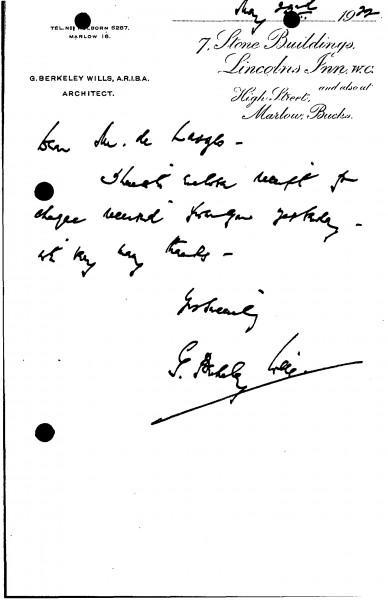 May 22nd 1922
TEL. NO HOLBORN 6287.
MARLOW 16.
G. BERKELEY WILLS, A.R.I.B.A.
ARCHITECT.
7, Stone Buildings,
Lincolns Inn, W.C.
and also at
High Street,
Marlow, Bucks.
Dear Mr. de Laszlo -
I herewith enclose receipt for
cheque received from you yesterday -
with very many thanks -
Yrs sincerely
G. Berkeley Wills.